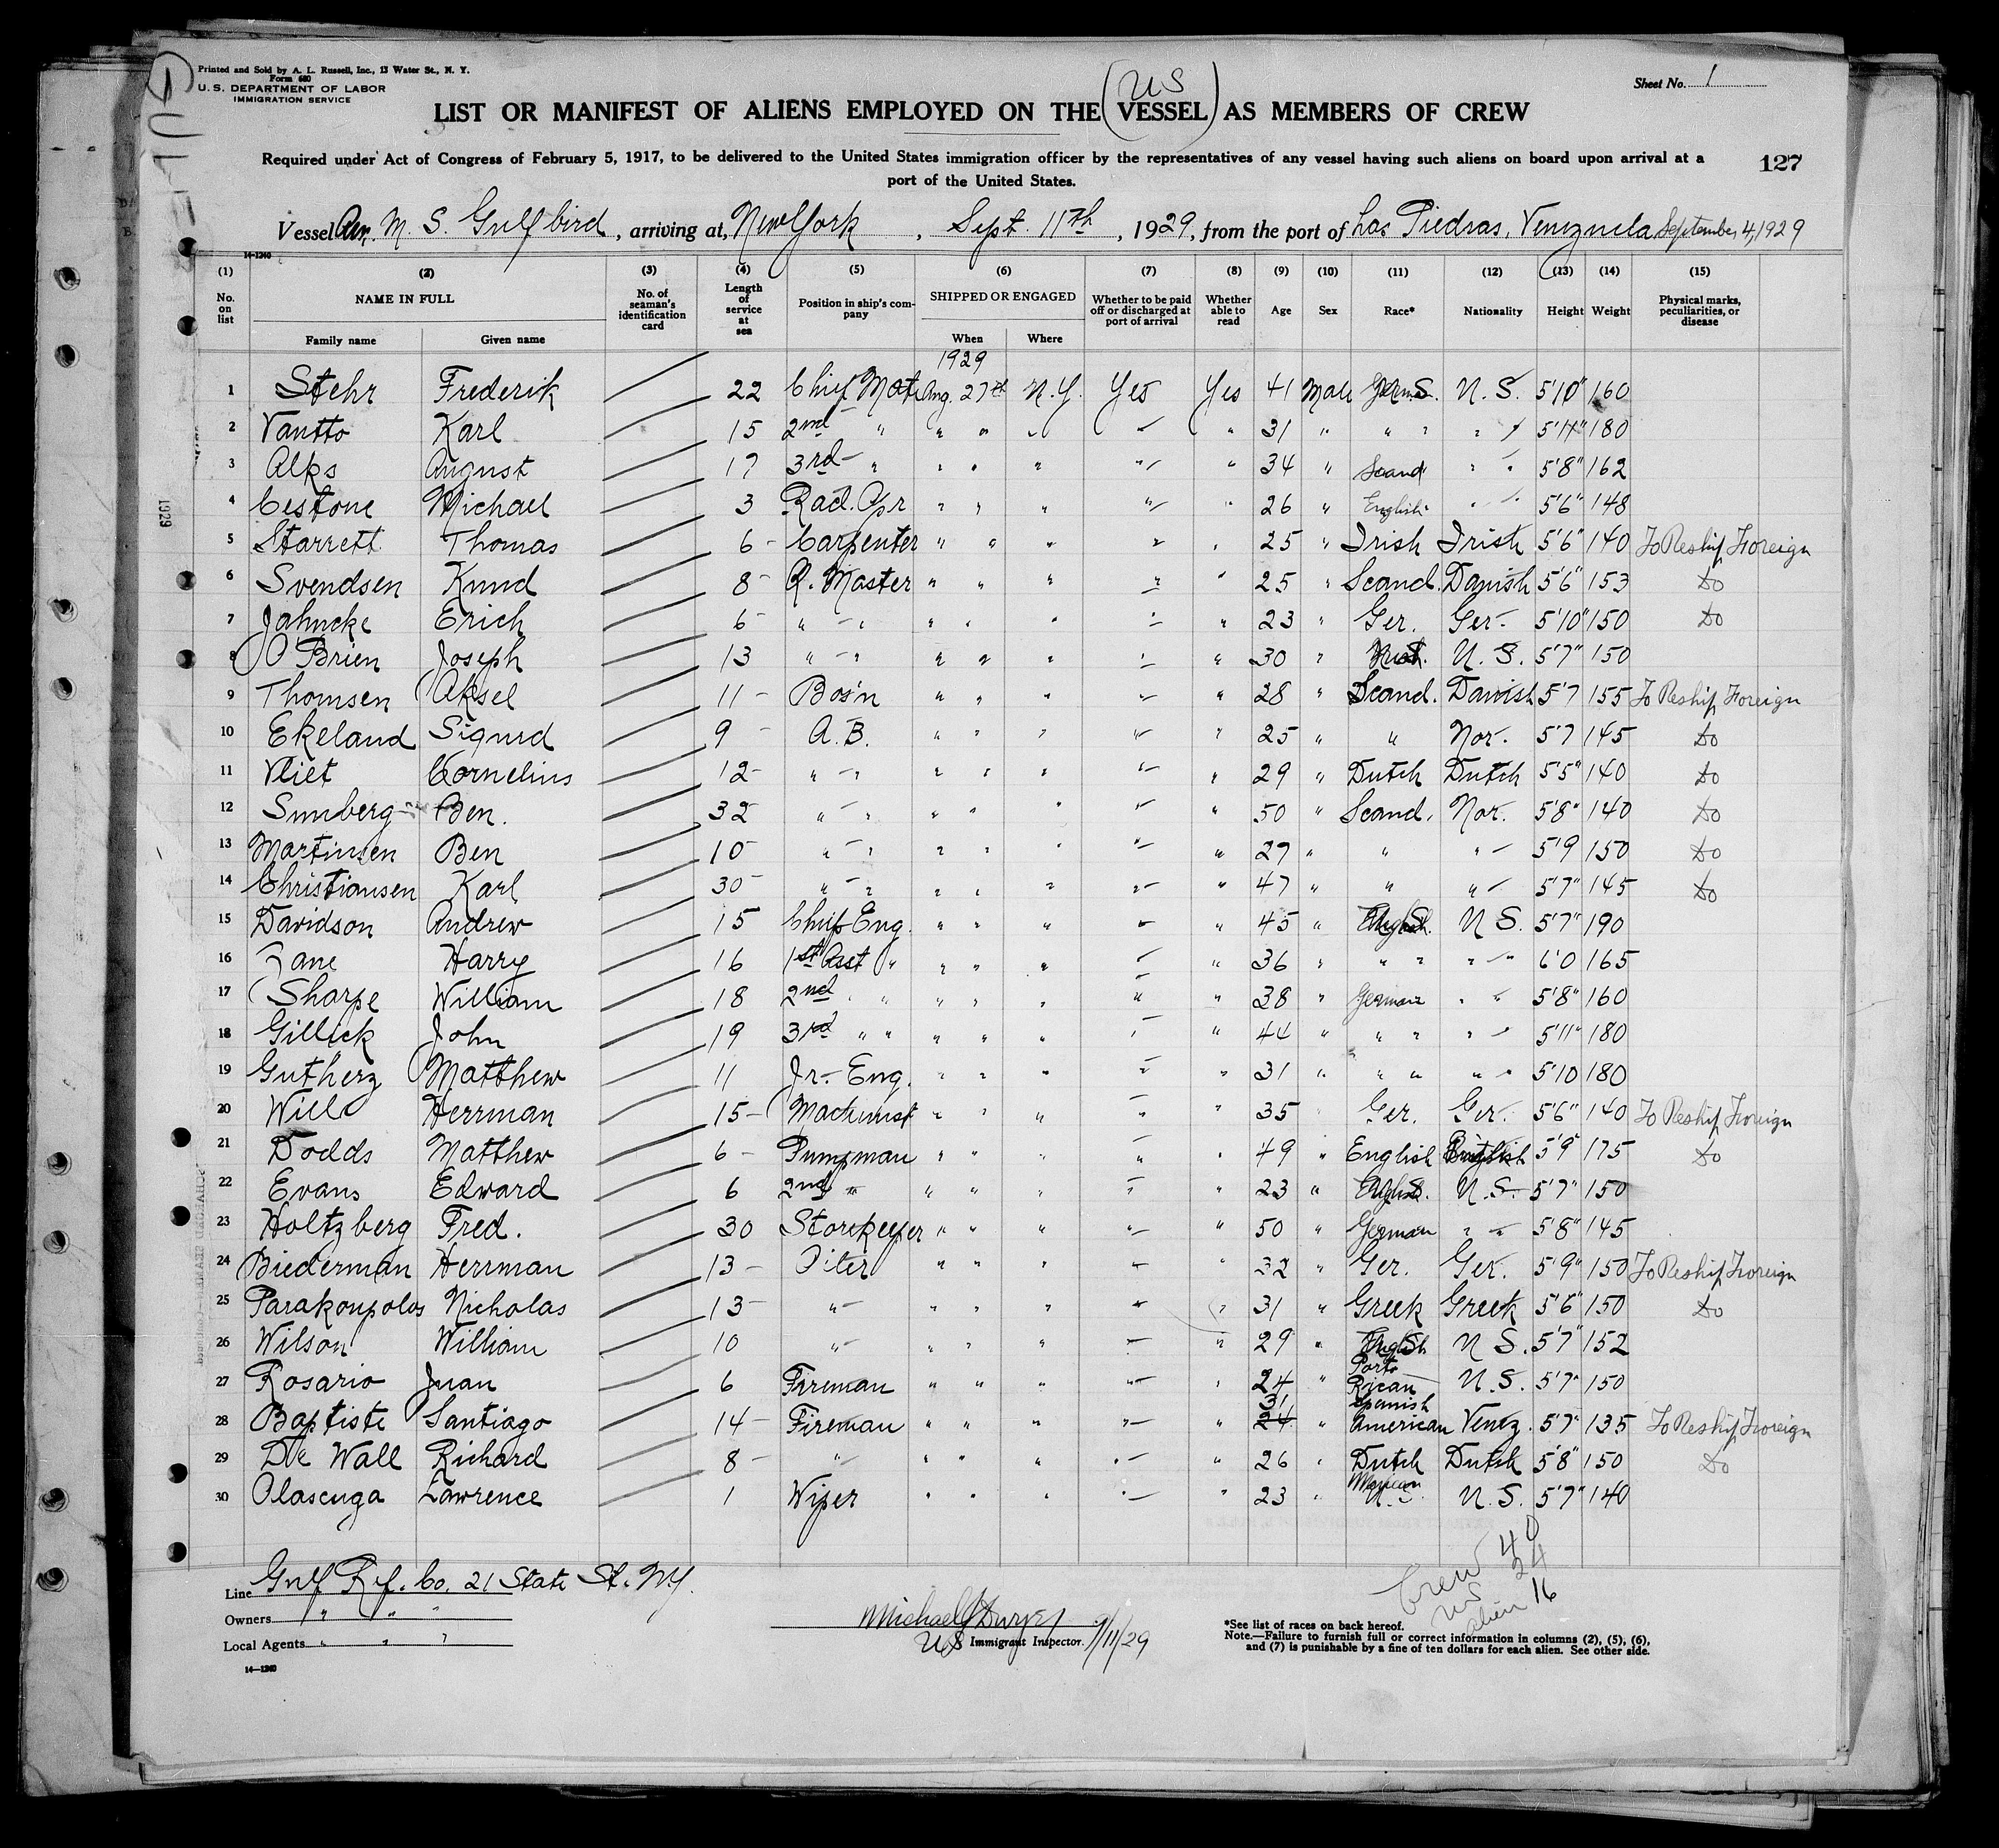 Printed and Sold by A. L. Russell, Inc., 13 Water St., N. Y.
Form 680
U. S. DEPARTMENT OF LABOR
IMMIGRATION SERVICE
Sheet No. 1
US
LIST OR MANIFEST OF ALIENS EMPLOYED ON THE (VESSEL) AS MEMBERS OF CREW
Required under Act of Congress of February 5, 1917, to be delivered to the United States immigration officer by the representatives of any vessel having such aliens on board upon arrival at a
port of the United States.
127
Vessel Am. M. S. Gulfbird, arriving at, New York, Sept. 11th, 1929, from the port of Las Piedras, Venezuela September 4, 1929
14-1240
(1) (2) (3) (4) (5) (6) (7) (8) (9) (10) (11) (12) (13) (14) (15)
No. on list NAME IN FULL No. of seaman's identification card Length of service at sea Position in ship's company SHIPPED OR ENGAGED Whether to be paid off or discharged at port of arrival Whether able to read Age Sex Race* Nationality Height Weight Physical marks, peculiarities, or disease
Family name Given name When Where
1929
1 Stehr Frederik 22 Chief Mate Aug. 27th N.Y. Yes Yes 41 Male U. S. 5'10" 160
2 Vantto Karl 15 2nd " " " " " 31 " " " 5'11" 180
3 Alks August 17 3rd " " " " " " 34 " Scand " " 5'8" 162
4 Cestone Michael 3 Rad. Opr " " " " " 26 " English " 5'6" 148
5 Starrett Thomas 6 - Carpenter " " " " " 25 " Irish Irish 5'6" 140 To Reship Foreign
6 Svendsen Knud 8 - Q. Master " " " " " 25 " Scand. Danish 5'6" 153 Do
7 Jahncke Erich 6 - " - " " " " " " 23 " Ger. Ger. 5'10" 150 Do
8 O'Brien Joseph 13 " - " " " " " " 30 " U. S. 5'7" 150
9 Thomsen Aksel 11 - Bos'n " " " " " 28 " Scand. Danish 5'7 155 To Reship Foreign
10 Ekeland Sigurd 9 - A. B. " " " " " 25 " " Nor. 5'7 145 Do
11 Vliet Cornelius 12 - " - " " " " " " 29 " Dutch Dutch 5'5" 140 Do
12 Sunberg Ben. 32 " - " " " " " " 50 " Scand. Nor. 5'8" 140 Do
13 Martinsen Ben 10 - " - " " " " " " 27 " " " 5'9 150 Do
14 Christiansen Karl 30 - " - " " " " " " 47 " " " 5'7" 145 Do
15 Davidson Andrew 15 Chief Eng. " " " " " 45 " U. S. 5'7" 190
16 Lane Harry 16 1st Asst " " " " " " 36 " " " 6'0 165
17 Sharpe William 18 2nd " " " " " " " 38 " German " " 5'8" 160
18 Gillick John 19 3rd " " " " " " " 44 " " " " 5'11" 180
19 Gutherz Matthew 11 Jr. Eng. " " " " " 31 " " " " 5'10 180
20 Will Herrman 15 - Machinist " " " " " 35 Ger. Ger. 5'6" 140 To Reship Foreign
21 Dodds Matthew 6 - Pumpman " " " " " 49 " English 5'9" 175 Do
22 Evans Edward 6 2nd " " " " " " 23 " U. S. 5'7" 150
23 Holtzberg Fred. 30 Storekeeper " " " " " 50 " German " 5'8" 145
24 Biederman Herrman 13 - Oiler " " " " " 32 " Ger. Ger. 5'9" 150 To Reship Foreign
25 Parakoupolos Nicholas 13 - " " " " " " 31 " Greek Greek 5'6" 150 Do
26 Wilson William 10 " " " " " " 29 " English U. S. 5'7" 152
27 Rosario Juan 6 Fireman " " " " " 24 " Porto Rican U. S. 5'7" 150
28 Baptiste Santiago 14 - Fireman " " " " " 31 24 " Spanish American Venez. 5'7" 135 To Reship Foreign
29 De Wall Richard 8 - " " " " " " 26 " Dutch Dutch 5'8" 150 Do
30 Olascuga Lawrence 1 Wiper " " " " " 23 " Mexican U. S. 5'7" 140
Crew 40
US 24
alien 16
Line Gulf Ref. Co. 21 State St. N.Y.
Owners " " "
Local Agents " " "
14-1240
Michael J Dwyer
US Immigrant Inspector. 9/11/29
*See list of races on back hereof.
Note.—Failure to furnish full or correct information in columns (2), (5), (6),
and (7) is punishable by a fine of ten dollars for each alien. See other side.
1929